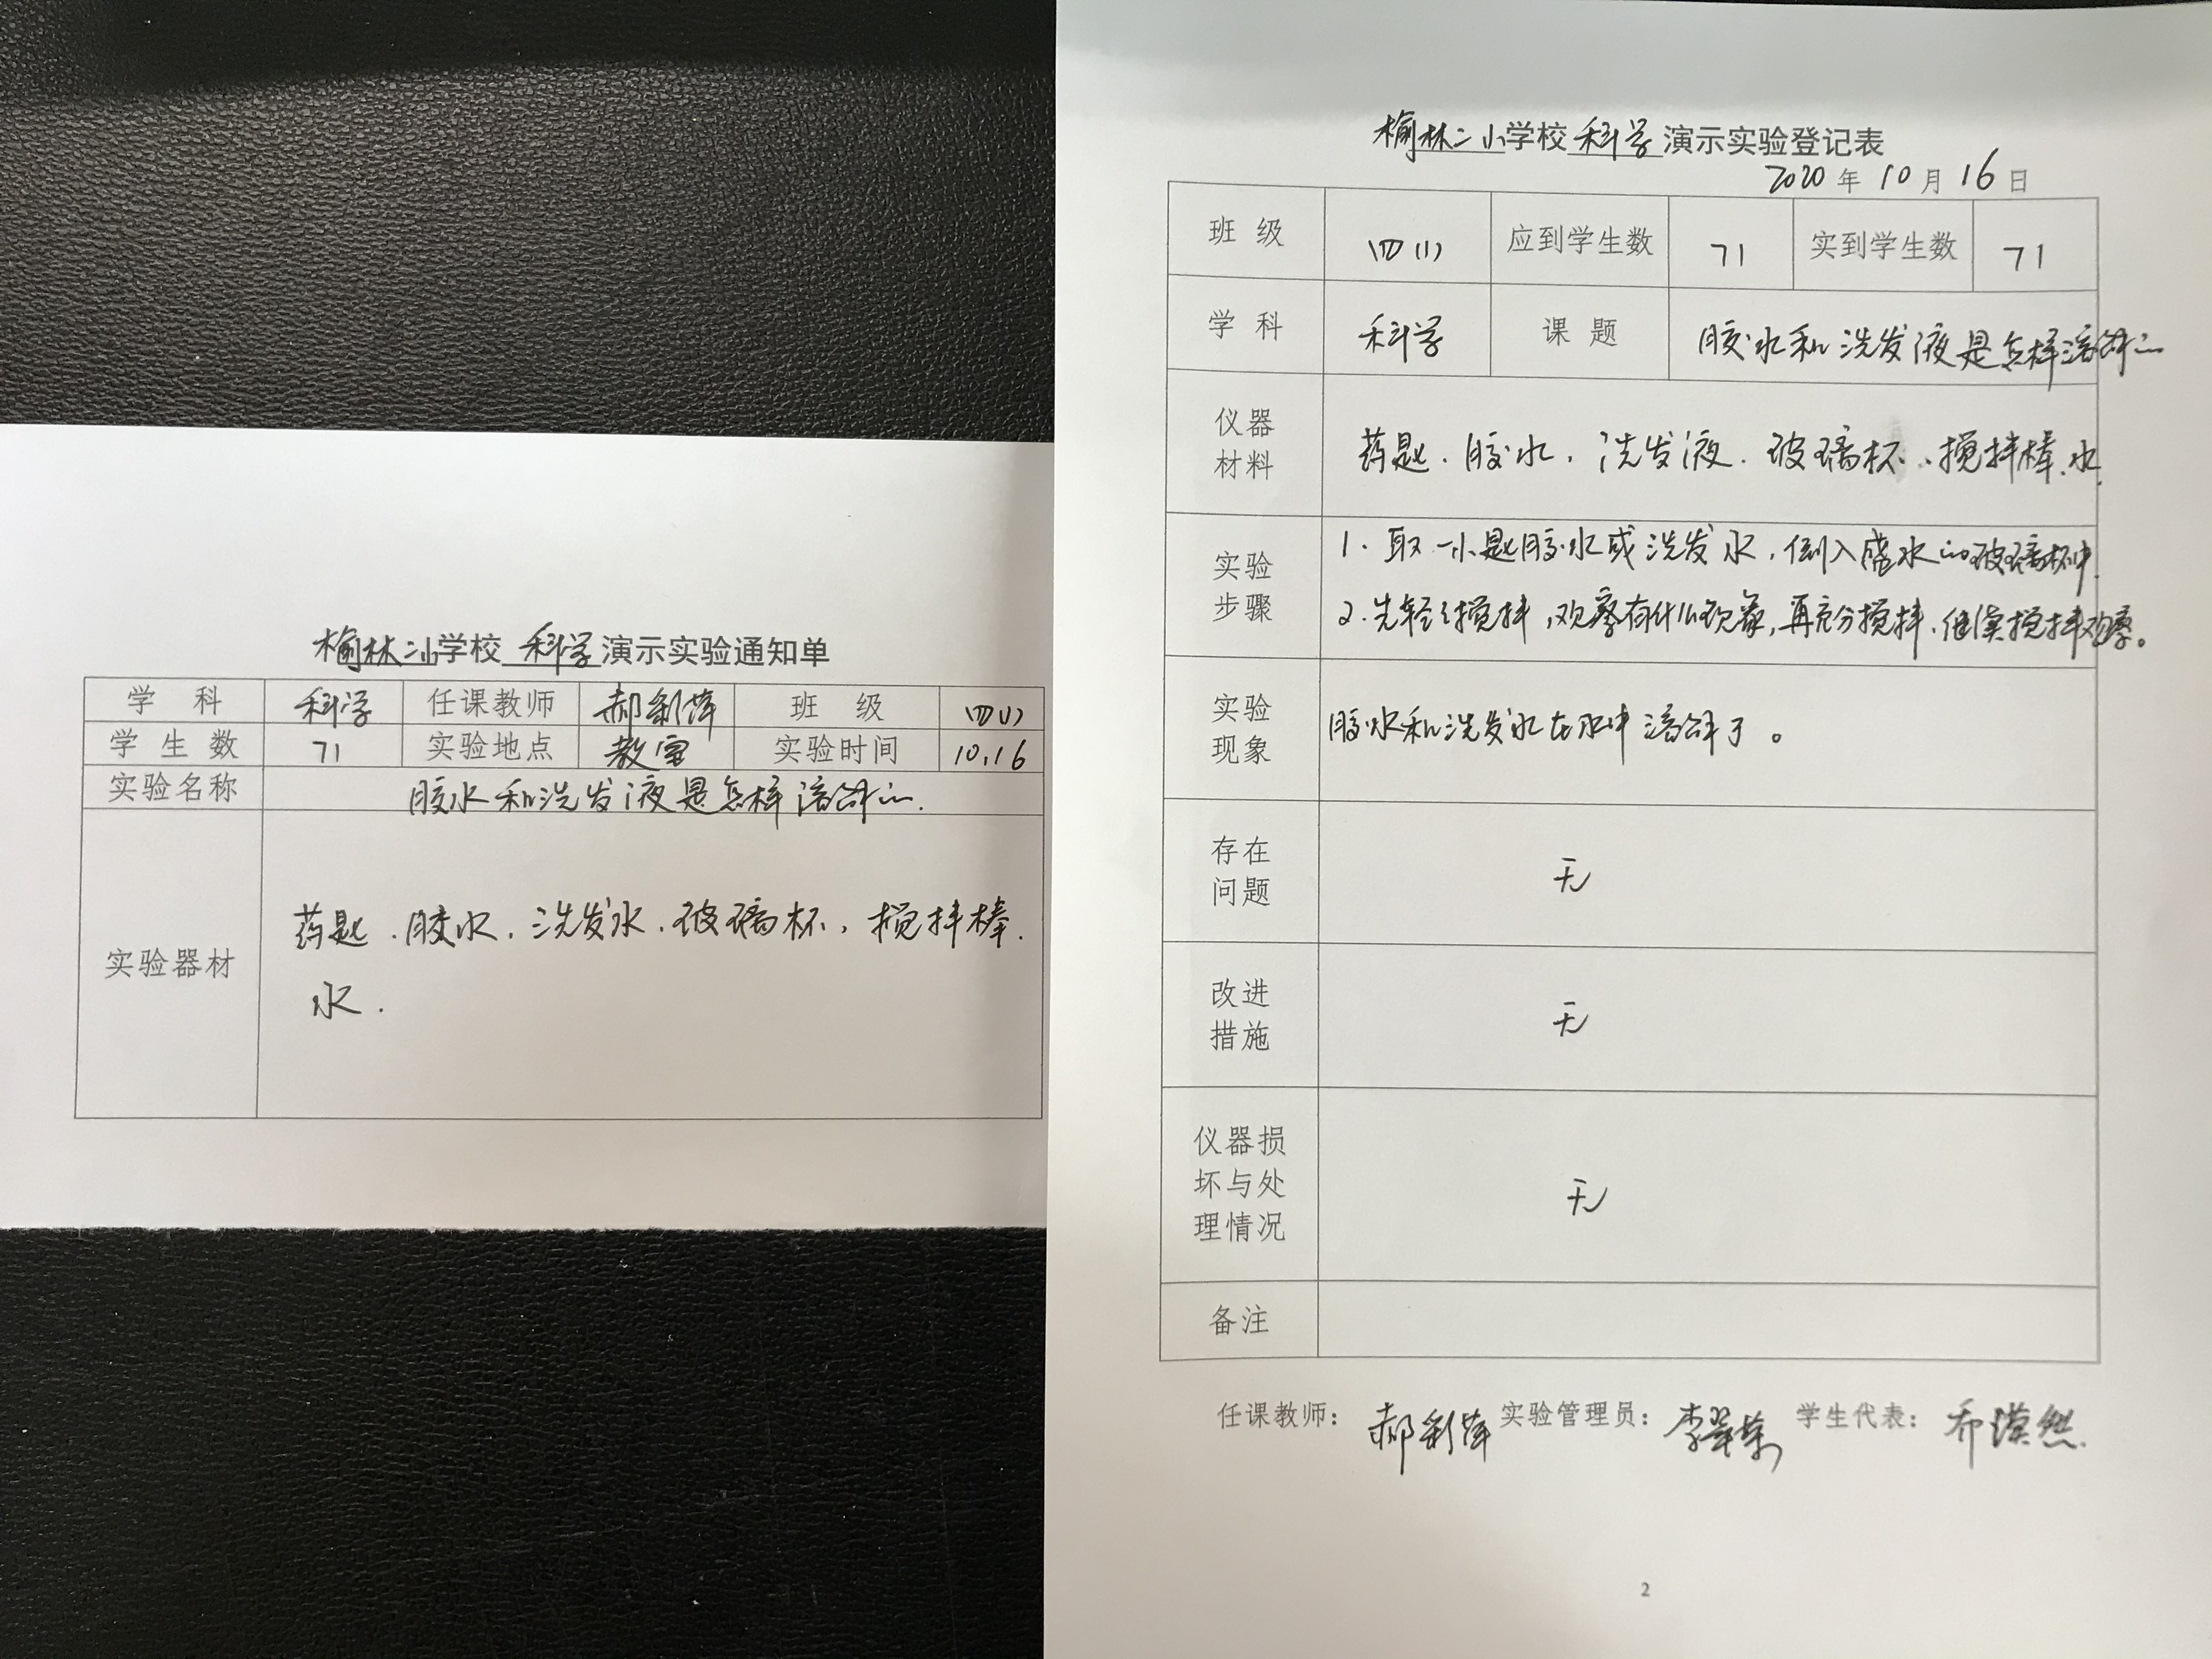 榆林二小学校 科学 演示实验通知单
学科 科学 任课教师 郝彩萍 班级 四(1)
学生数 71 实验地点 教室 实验时间 10.16
实验名称 胶水和洗发液是怎样溶解的.
实验器材 药匙.胶水.洗发水.玻璃杯,搅拌棒.
水.
榆林二小学校科学演示实验登记表
2020年10月16日
班级 四(1) 应到学生数 71 实到学生数 71
学科 科学 课题 胶水和洗发液是怎样溶解的
仪器
材料
药匙.胶水,洗发液.玻璃杯、搅拌棒.水.
实验
步骤
1.取一小匙胶水或洗发水,倒入盛水的玻璃杯中.
2.先轻轻搅拌,观察有什么现象,再充分搅拌.继续搅拌观察。
实验
现象
胶水和洗发水在水中溶解了。
存在
问题
无
改进
措施
无
仪器损
坏与处
理情况
无
备注
任课教师: 郝彩萍 实验管理员: 李翠 学生代表: 乔漠然.
2